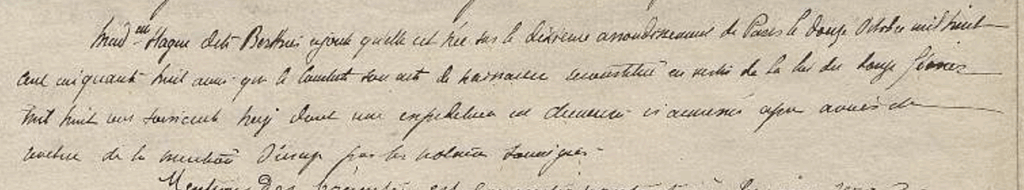 Mad^me Hague dite Berthier ajoute qu'elle est née sur le dixième arrondissement de Paris le douze Octobre mil huit
cent cinquante huit ainsi que le constate son acte de naissance reconstitué en vertu de la loi du douze février
mil huit cent soixante treize dont une expédition est demeurée ci annexée après avoir été
revêtue de la mention d'usage par les notaires soussignés.
Mentions des présentes est